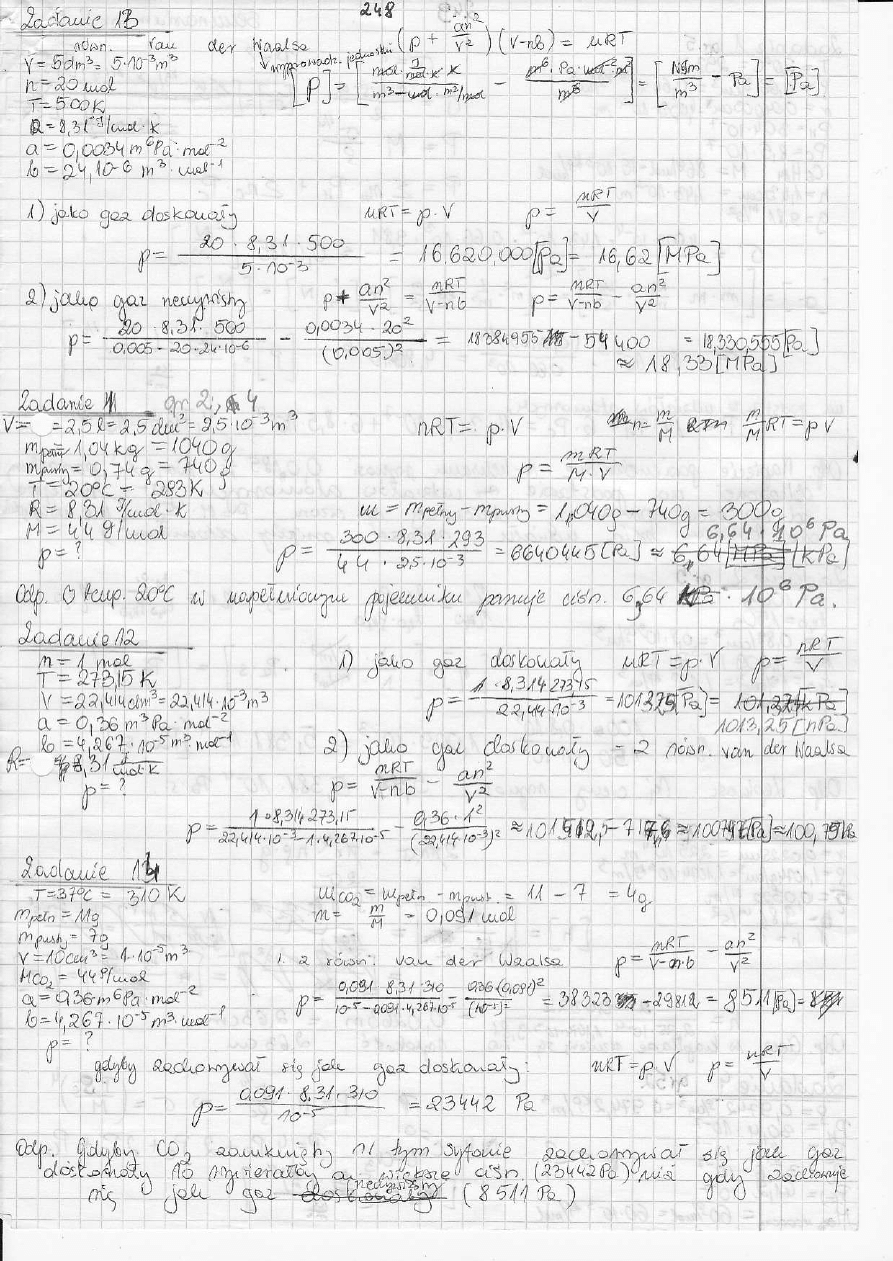 248
Zadanie 13
równ. van der Waalsa (p + an²/V²)(V-nb) = nRT
V = 5dm³ = 5·10⁻³m³
n = 20 mol
T = 500K
R = 8,31 J/mol·K
a = 0,0034 m⁶Pa·mol⁻²
b = 24·10-6 m³·mol⁻¹
1) jako gaz doskonały nRT = p·V p = nRT/V
p = 20·8,31·500 / 5·10⁻³ = 16,620,000[Pa] = 16,62 [MPa]
2) jako gaz rzeczywisty p+ an²/V² = nRT/V-nb p = nRT/V-nb - an²/V²
p = 20·8,31·500 / 0,005-20·24·10⁻⁶ - 0,0034·20² / (0,005)² = 18384955 - 54400 = 18,330,555[Pa]
≈ 18,33[MPa]
Zadanie 11 gr 2, 4
V = 2,5l = 2,5dm³ = 2,5·10⁻³m³
nRT = p·V n = m/M m/M RT = pV
mpełny 1,04kg = 1040g
mpusty = 0,74g = 740g
p = mRT/M·V
T = 20°C = 293K
R = 8,31 J/mol·K
m = mpełny - mpusty = 1,040g - 740g = 300g
M = 44 g/mol
p = ?
p = 300·8,31·293 / 44·2,5·10⁻³ = 6640445[Pa] ≈ 6,64 [MPa] [kPa]
6,64·10⁶Pa
Odp. O temp. 20°C w napełnionym pojemniku panuje ciśn. 6,64 kPa·10⁶Pa.
Zadanie 12
n = 1 mol
T = 273,15K
V = 22,414dm³ = 22,414·10⁻³m³
a = 0,36 m³Pa·mol⁻²
b = 4,267·10⁻⁵m³·mol⁻¹
R = 8,31 J/mol·K
p = ?
1) jako gaz doskonały nRT = p·V p = nRT/V
p = 1·8,314·273,15 / 22,414·10⁻³ = 101325[Pa] = 101,325[kPa]
1013,25[hPa]
2) jako gaz doskonały - z równ. van der Waalsa
p = nRT/V-nb - an²/V²
p = 1·8,314·273,15 / 22,414·10⁻³-1·4,267·10⁻⁵ - 0,36·1² / (22,414·10⁻³)²
Zadanie 14
T = 37°C = 310K
mpełn = 11g
mpust = 7g
V = 10cm³ = 1·10⁻⁵m³
MCO₂ = 44g/mol
a = 0,36·m⁶Pa·mol⁻²
b = 4,267·10⁻⁵m³·mol⁻¹
p = ?
mCO₂ = mpełn - mpust. = 11 - 7 = 4g
n = m/M = 0,091 mol
1. z równ. van der Waalsa p = nRT/V-n·b - an²/V²
p = 0,091·8,31·310 / 10⁻⁵-0,091·4,267·10⁻⁵ - 0,36·(0,091)² / (10⁻⁵)² = 38323 - 29812 = 8511[Pa]
gdyby zachowywał się jak gaz doskonały: nRT = p·V p = nRT/V
p = 0,091·8,31·310 / 10⁻⁵ = 23442 Pa
Odp. Gdyby CO₂ zamknięty w tym syfonie zachowywał się jak gaz
doskonały to wywierałby on większe ciśn. (23442Pa) niż gdy zachowuje
się jak gaz doskonały rzeczywisty (8511Pa)